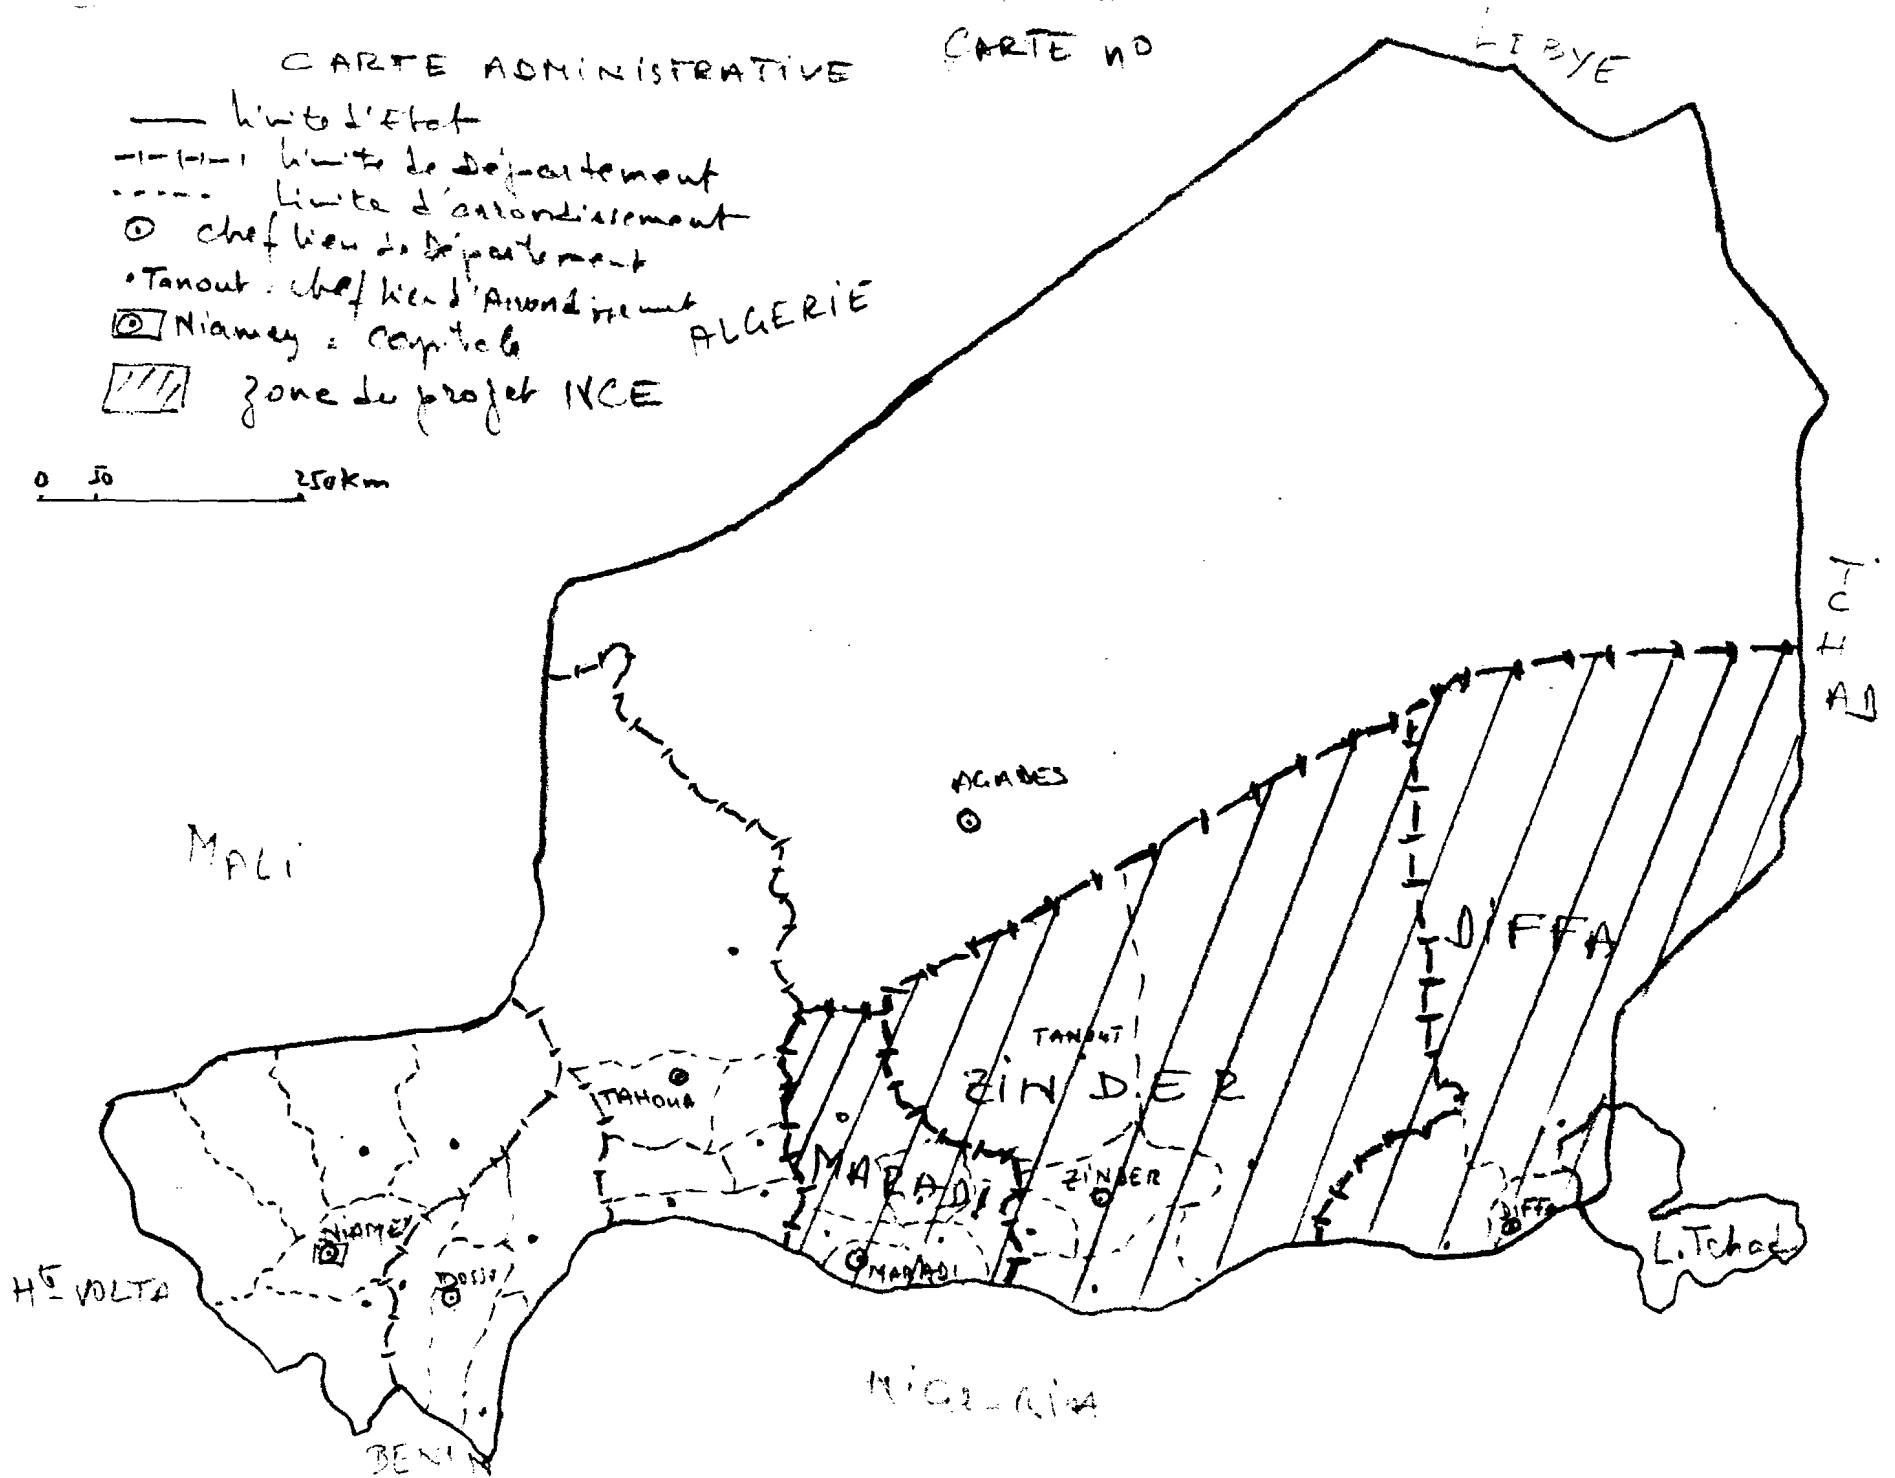 CARTE ADMINISTRATIVE
CARTE nº
limite d'Etat
limite de Département
limite d'arrondissement
chef lieu de Département
Tanout : chef lieu d'Arrondissement
Niamey = capitale
zone du projet IVCE
0 50 250Km
LIBYE
ALGERIE
TCHAD
AGADES
MALI
DIFFA
TANOUT
ZINDER
TAHOUA
MARADI
ZINDER
NIAMEY
DIFFA
L. Tchad
DOSSO
MARADI
Hte VOLTA
NIGERIA
BENIN